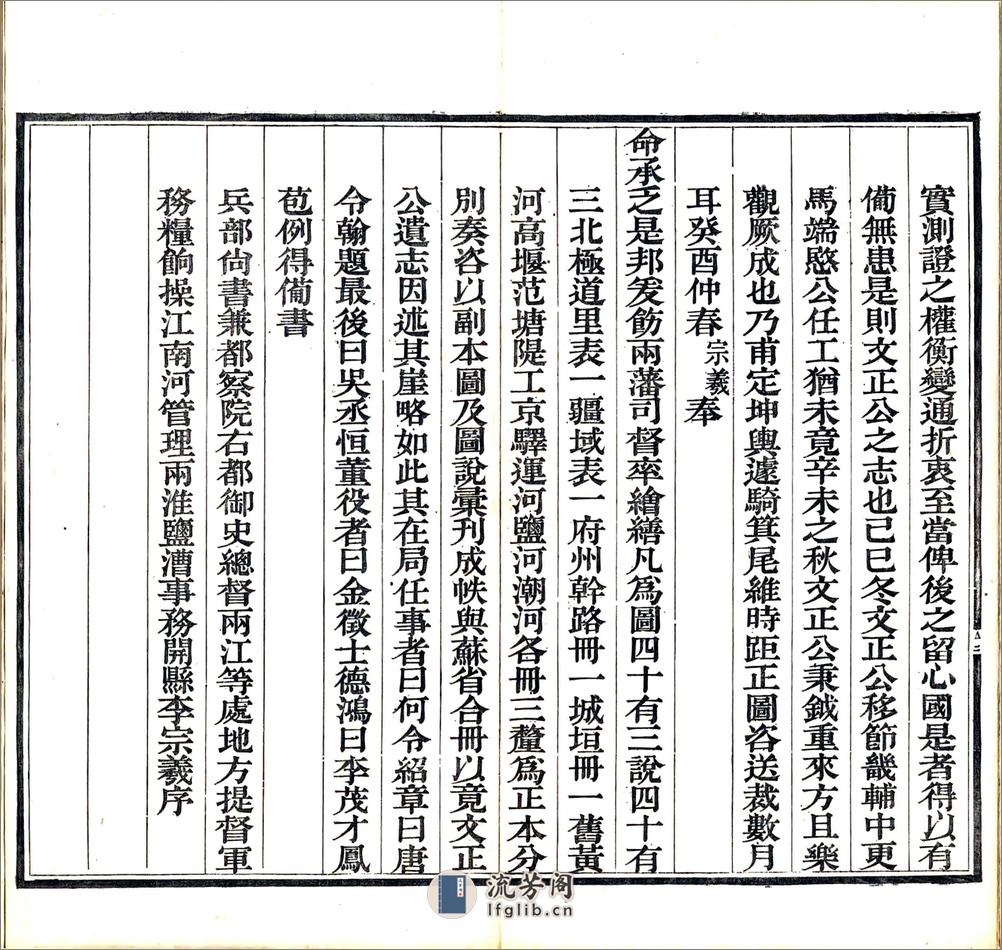 實測證之權衡變通折衷至當俾後之留心國是者得以有
僃無患是則文正公之志也己巳冬文正公移節畿輔中更
馬端愍公任工猶未竟辛未之秋文正公秉鉞重來方且樂
觀厥成也乃甫定坤輿遽騎箕尾維時距正圖咨送裁數月
耳癸酉仲春宗羲奉
命承乏是邦爰飭兩藩司督率繪繕凡爲圖四十有三說四十有
三北極道里表一疆域表一府州幹路冊一城垣冊一舊黃
河高堰范塘隄工京驛運河鹽河潮河各冊三釐爲正本分
別奏咨以副本圖及圖說彙刊成帙與蘇省合冊以竟文正
公遺志因述其崖略如此其在局任事者曰何令紹章曰唐
令翰題最後曰吳丞恒董役者曰金徵士德鴻曰李茂才鳳
苞例得僃書
兵部尙書兼都察院右都御史總督兩江等處地方提督軍
務糧餉操江南河管理兩淮鹽漕事務開縣李宗羲序
流芳阁
lfglib.cn